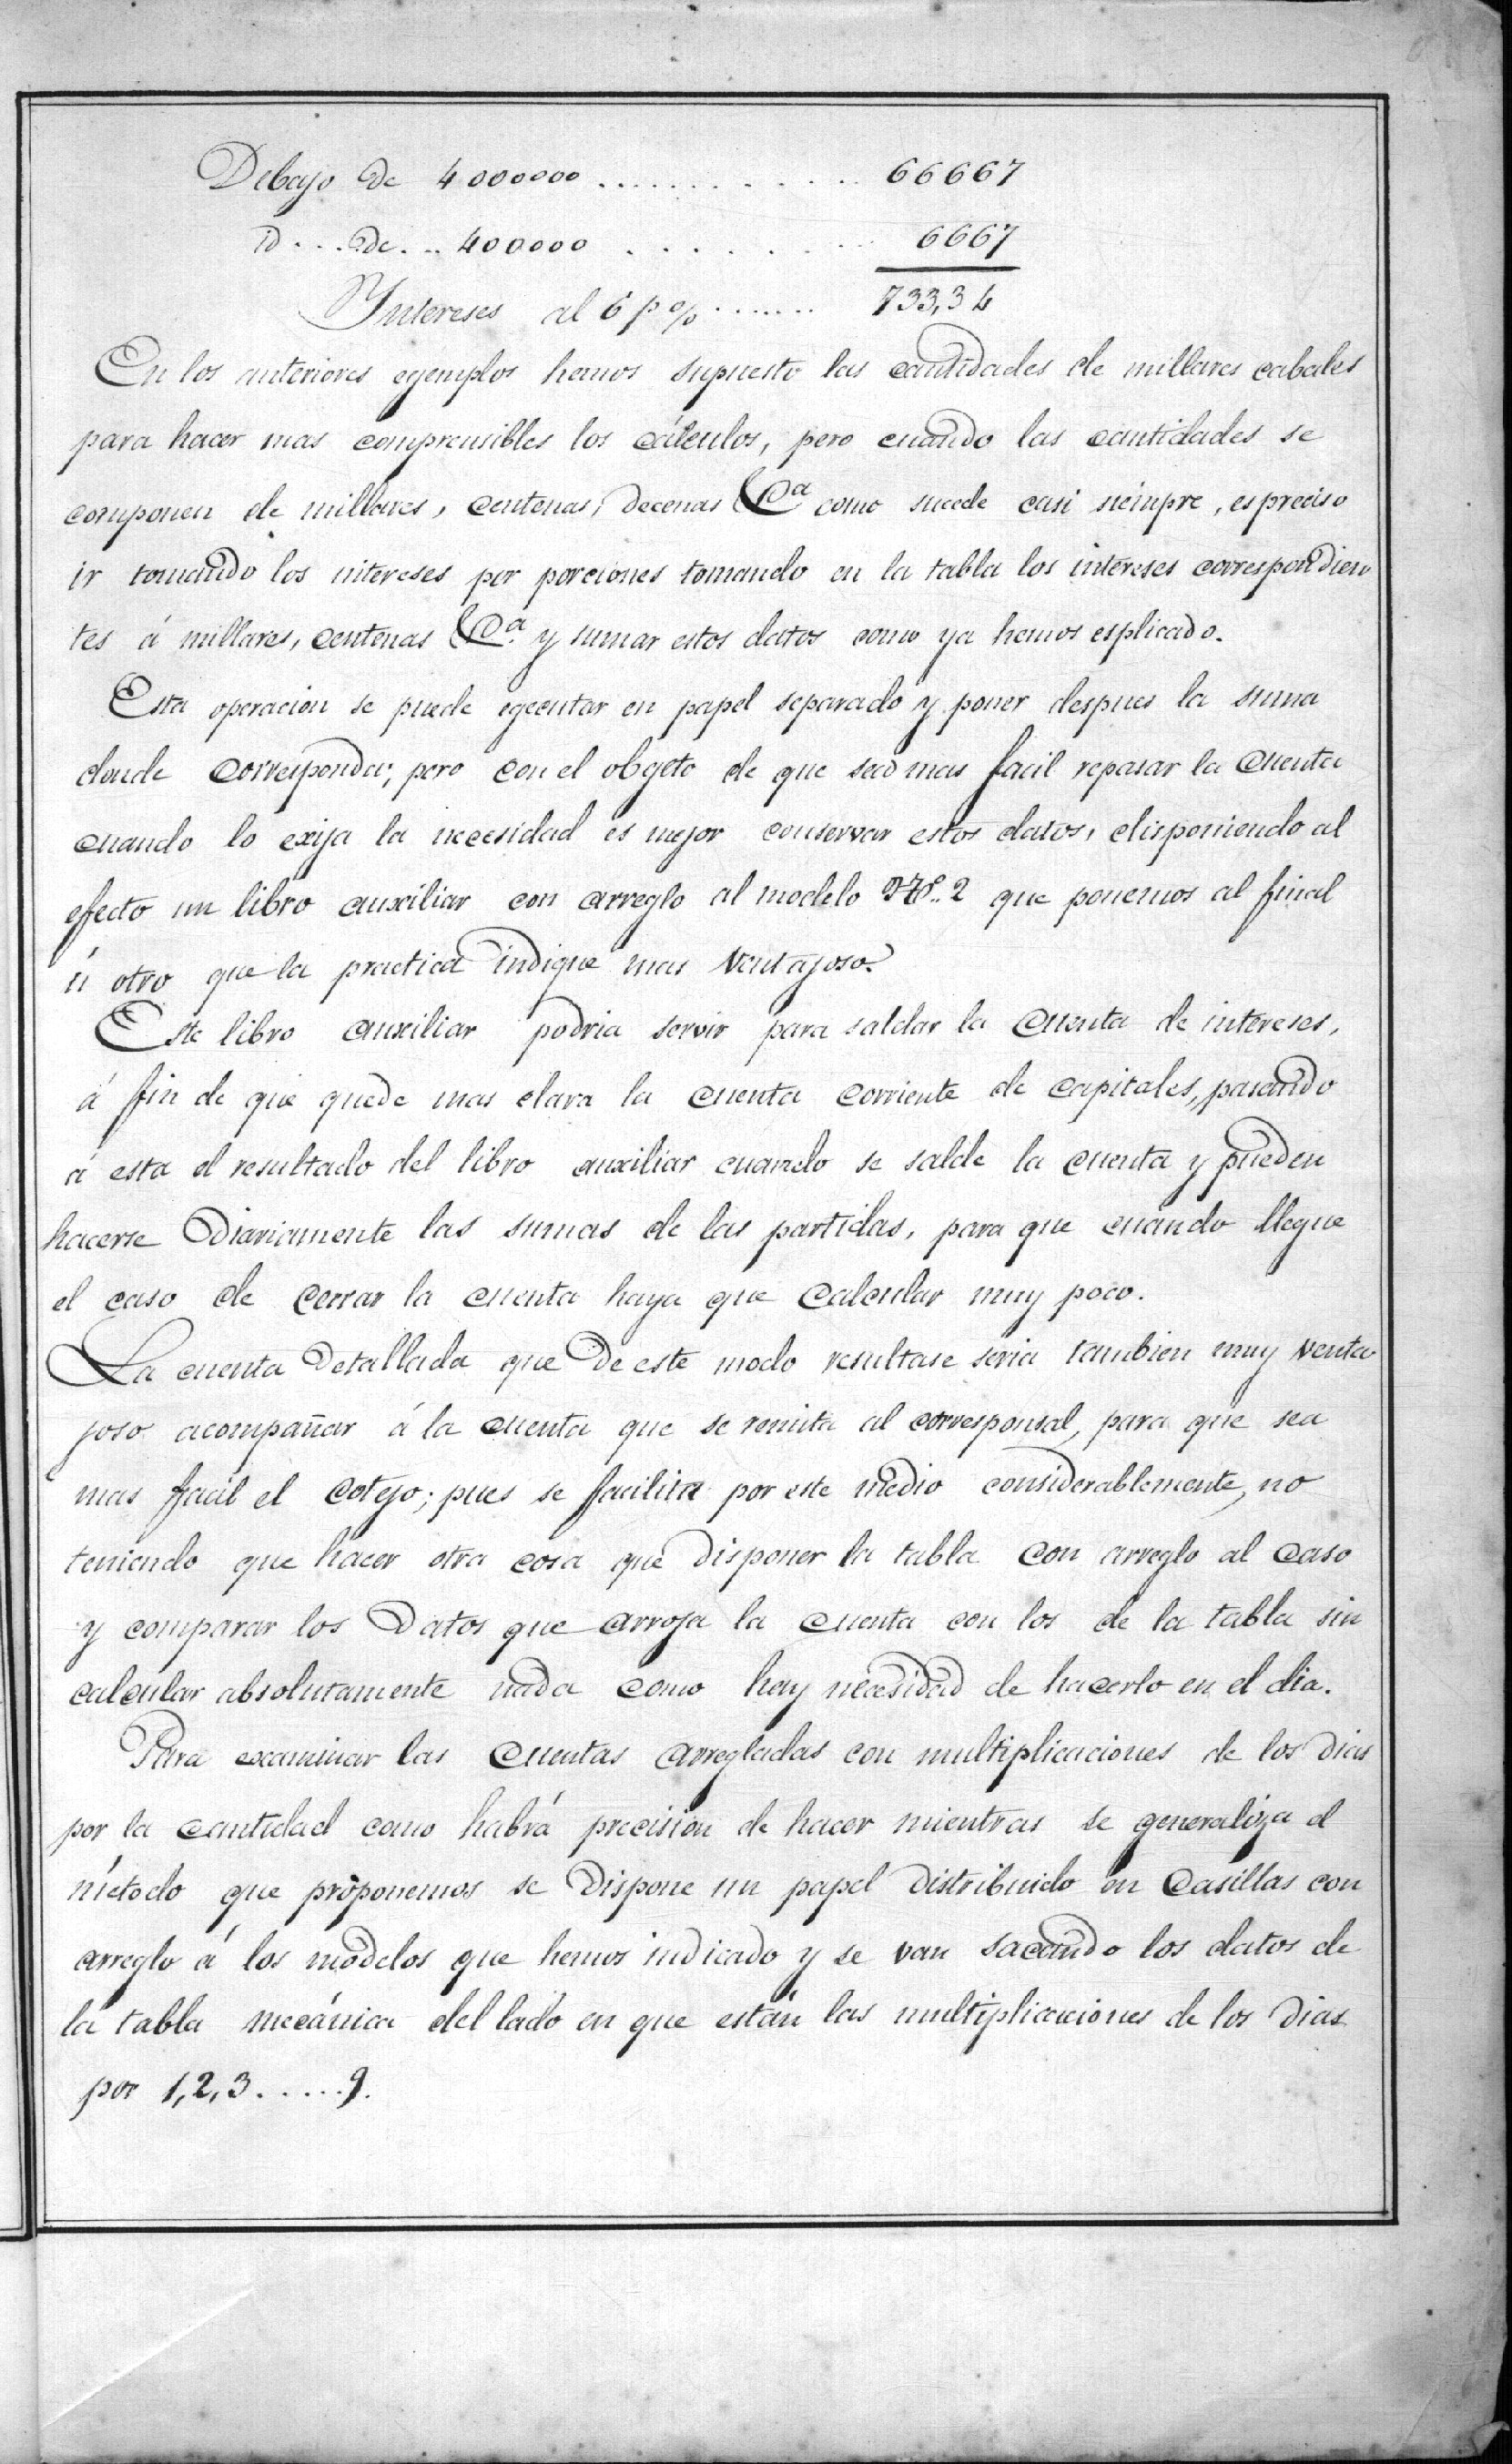 Debajo de 4000000 ............ 66667
id... de... 400000 ........ 6667
Yntereses al 6 p% ....... 733,34
En los anteriores egemplos hemos supuesto las cantidades de millares cabales
para hacer mas comprensibles los cálculos, pero cuando las cantidades se
componen de millares, centenas, decenas &a como sucede casi siempre, es preciso
ir tomando los intereses por porciones tomando en la tabla los intereses correspondien
tes á millares, centenas &a. y sumar estos datos como ya hemos esplicado.
Esta operacion se puede egecutar en papel separado y poner despues la suma
donde corresponda; pero con el obgeto de que sea mas facil repasar la cuenta
cuando lo exija la necesidad es mejor conservar estos datos, disponiendo al
efecto un libro auxiliar con arreglo al modelo Nº. 2 que ponemos al final
ú otro que la practica indique mas ventajoso.
Este libro auxiliar podria servir para saldar la cuenta de intereses,
á fin de que quede mas clara la cuenta corriente de capitales, pasando
á esta el resultado del libro auxiliar cuando se salde la cuenta y pueden
hacerse diariamente las sumas de las partidas, para que cuando llegue
el caso de cerrar la cuenta haya que calcular muy poco.
La cuenta detallada que de este modo resultase seria tambien muy venta
joso acompañar á la cuenta que se remita al corresponsal, para que sea
mas facil el cotejo; pues se facilita por este medio considerablemente, no
teniendo que hacer otra cosa que disponer la tabla con arreglo al caso
y comparar los datos que arroja la cuenta con los de la tabla sin
calcular absolutamente nada como hay necesidad de hacerlo en el dia.
Para examinar las cuentas arregladas con multiplicaciones de los dias
por la cantidad como habrá precision de hacer mientras se generaliza el
método que proponemos se dispone un papel distribuido en casillas con
arreglo á los modelos que hemos indicado y se van sacando los datos de
la tabla mecánica del lado en que están las multiplicaciones de los dias
por 1, 2, 3.....9.